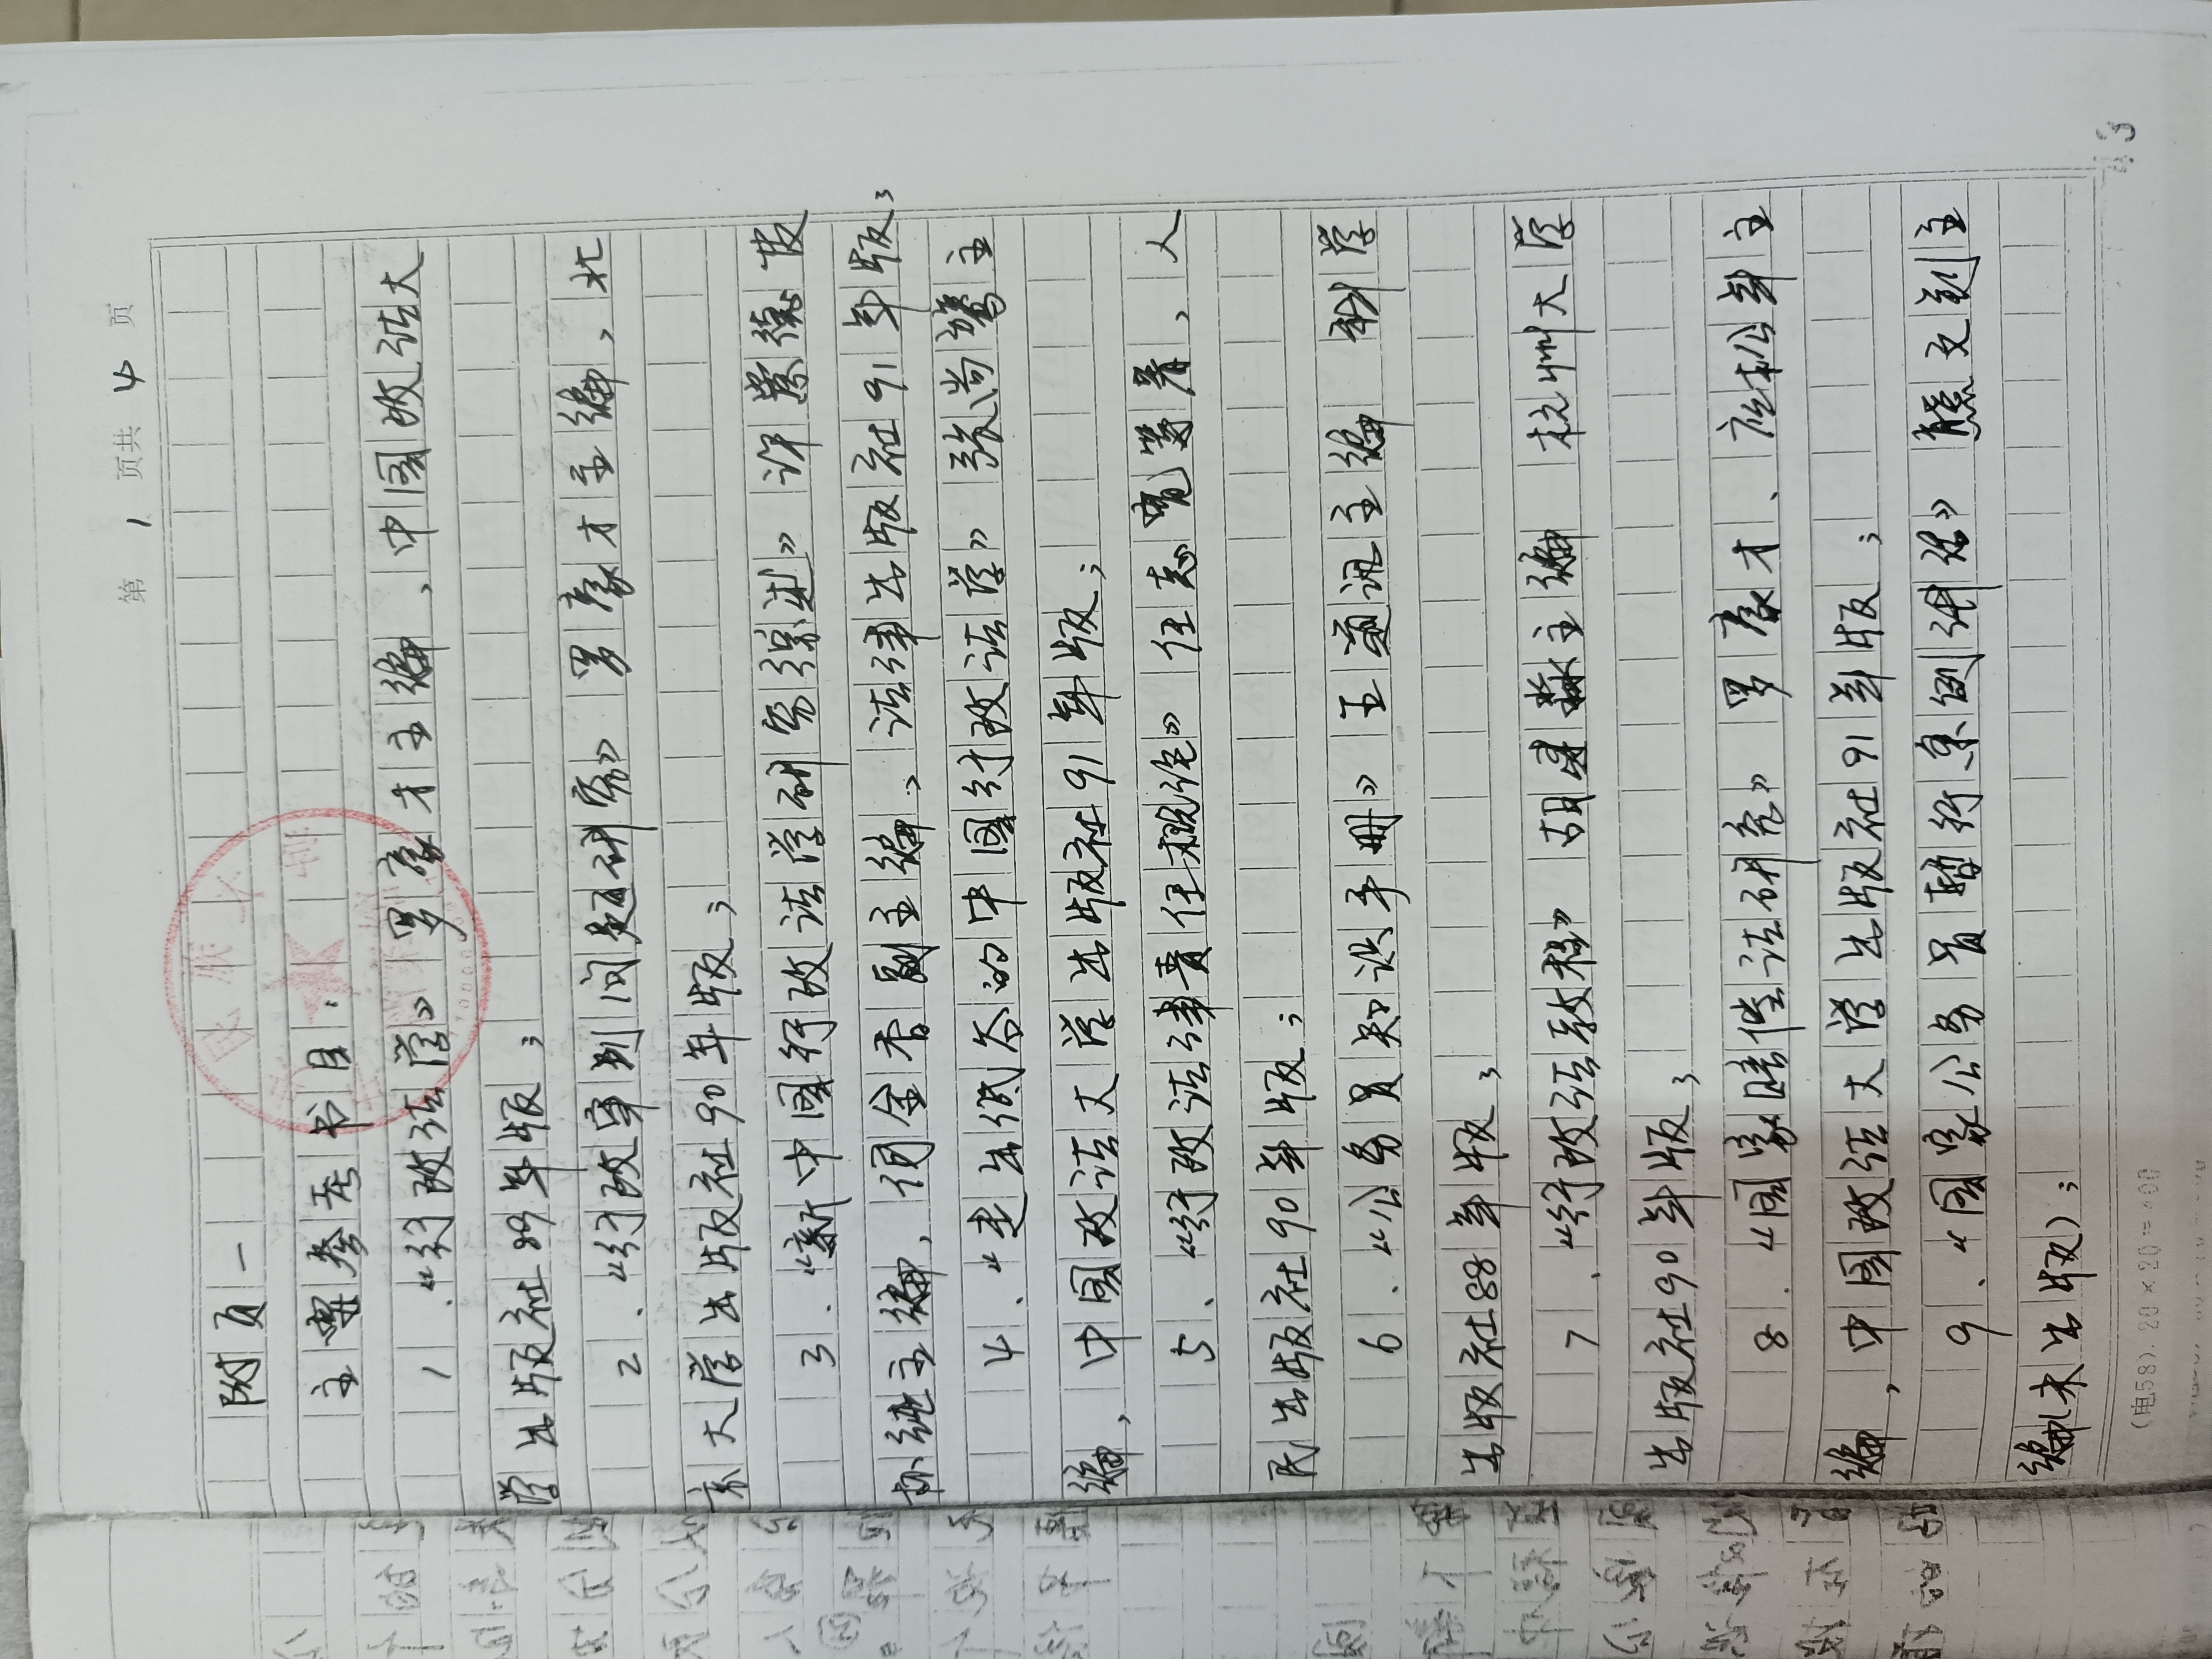 第 1 页共 4 页
附页一
主要参考书目:
1.《行政法学》罗豪才主编、中国政法大
学出版社89年版;
2.《行政审判问题研究》罗豪才主编、北
京大学出版社90年版;
3.《新中国行政法学研究综述》许崇德 皮
纯协主编、 副主编、法律出版社91年版;
4、《走出低谷的中国行政法学》张尚鷟主
编,中国政法大学出版社91年版;
5、《行政法律责任概论》任志宽等著、人
民出版社90年版;
6.《公务员知识手册》王通讯主编 科学
出版社88年版;
7.《行政法教程》胡建淼主编 杭州大学
出版社90年版;
8.《国家赔偿法研究》罗豪才、应松年主
编,中国政法大学出版社91年版;
9、《国家公务员暂行条例讲话》 主
编(未出版);
(电58).20×20=400